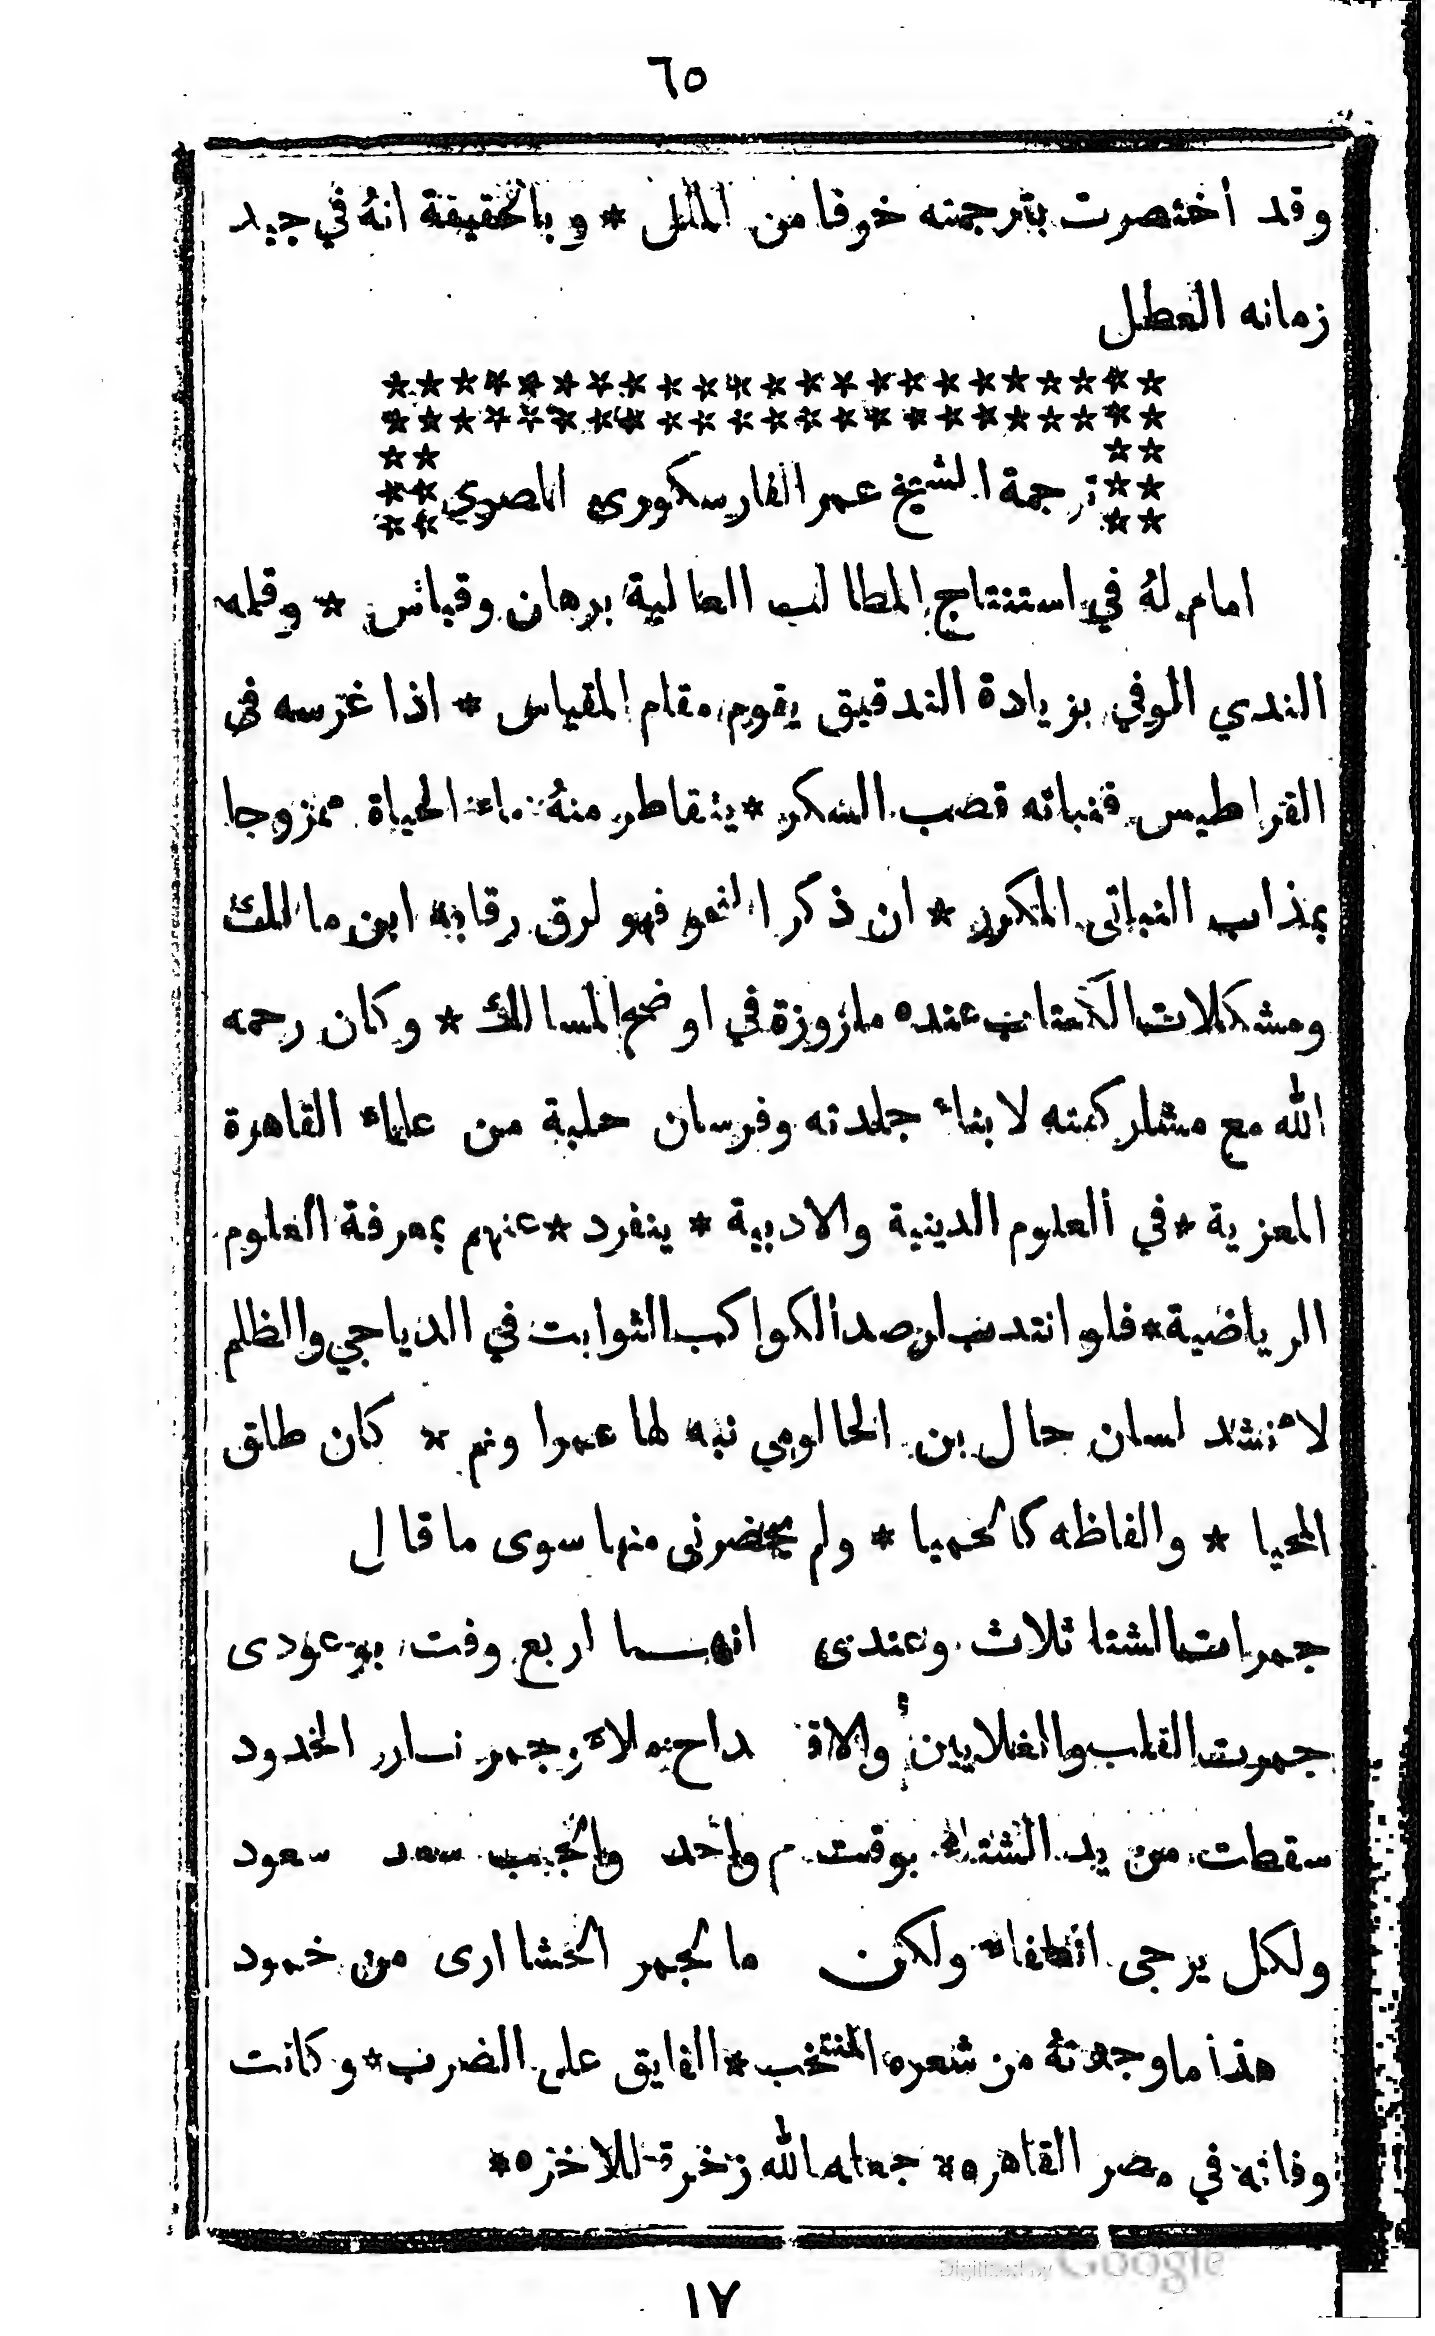 ٦٥
وقد أختصرت بترجمته خوفا من الملل * وبالحقيقة انهُ في جيد
زمانه العطل
ترجمة الشيخ عمر الفارسكوري المصري
امام لهُ في استنتاج المطالب العالية برهان وقياس * وقلمه
الندي الموفي بزيادة التدقيق يقوم مقام المقياس * اذا غرسه فى
القراطيس فنباته قصب السكر * يتقاطر منهُ ماء الحياة ممزوجا
بمذاب النباتى المكرر * ان ذكر النحو فهو لرق رقابه ابن مالك
ومشكلات الكتاب عنده ملزوزة في اوضح المسالك * وكان رحمه
الله مع مشاركته لابناء جلدته وفرسان حلبة من علماء القاهرة
المعزية * في العلوم الدينية والادبية * ينفرد * عنهم بمعرفة العلوم
الرياضية * فلو انتدب لرصد الكواكب الثوابت في الدياجي والظلم
لاءنشد لسان حال بن الحالومي نبه لها عمرا ونم * كان طلق
المحيا * والفاظه كالحميا * ولم يحضرنى منها سوى ما قال
جمرات الشتا ثلاث وعندى انهــا اربع وفت بوعودى
جمرت القلب والغلايين والاقداح ملاء وجمر نــار الخدود
سقطات من يد الشتاء بوقت م واحد والحبب سعد سعود
ولكل يرجى انطفاء ولكن ما لجمر الحشا ارى من خمود
هذا ما وجدتهُ من شعره المنتخب * الفايق على الضرب * وكانت
وفاته في مصر القاهره * جعله الله زخرة للاخره *
Digitized by Google
١٧